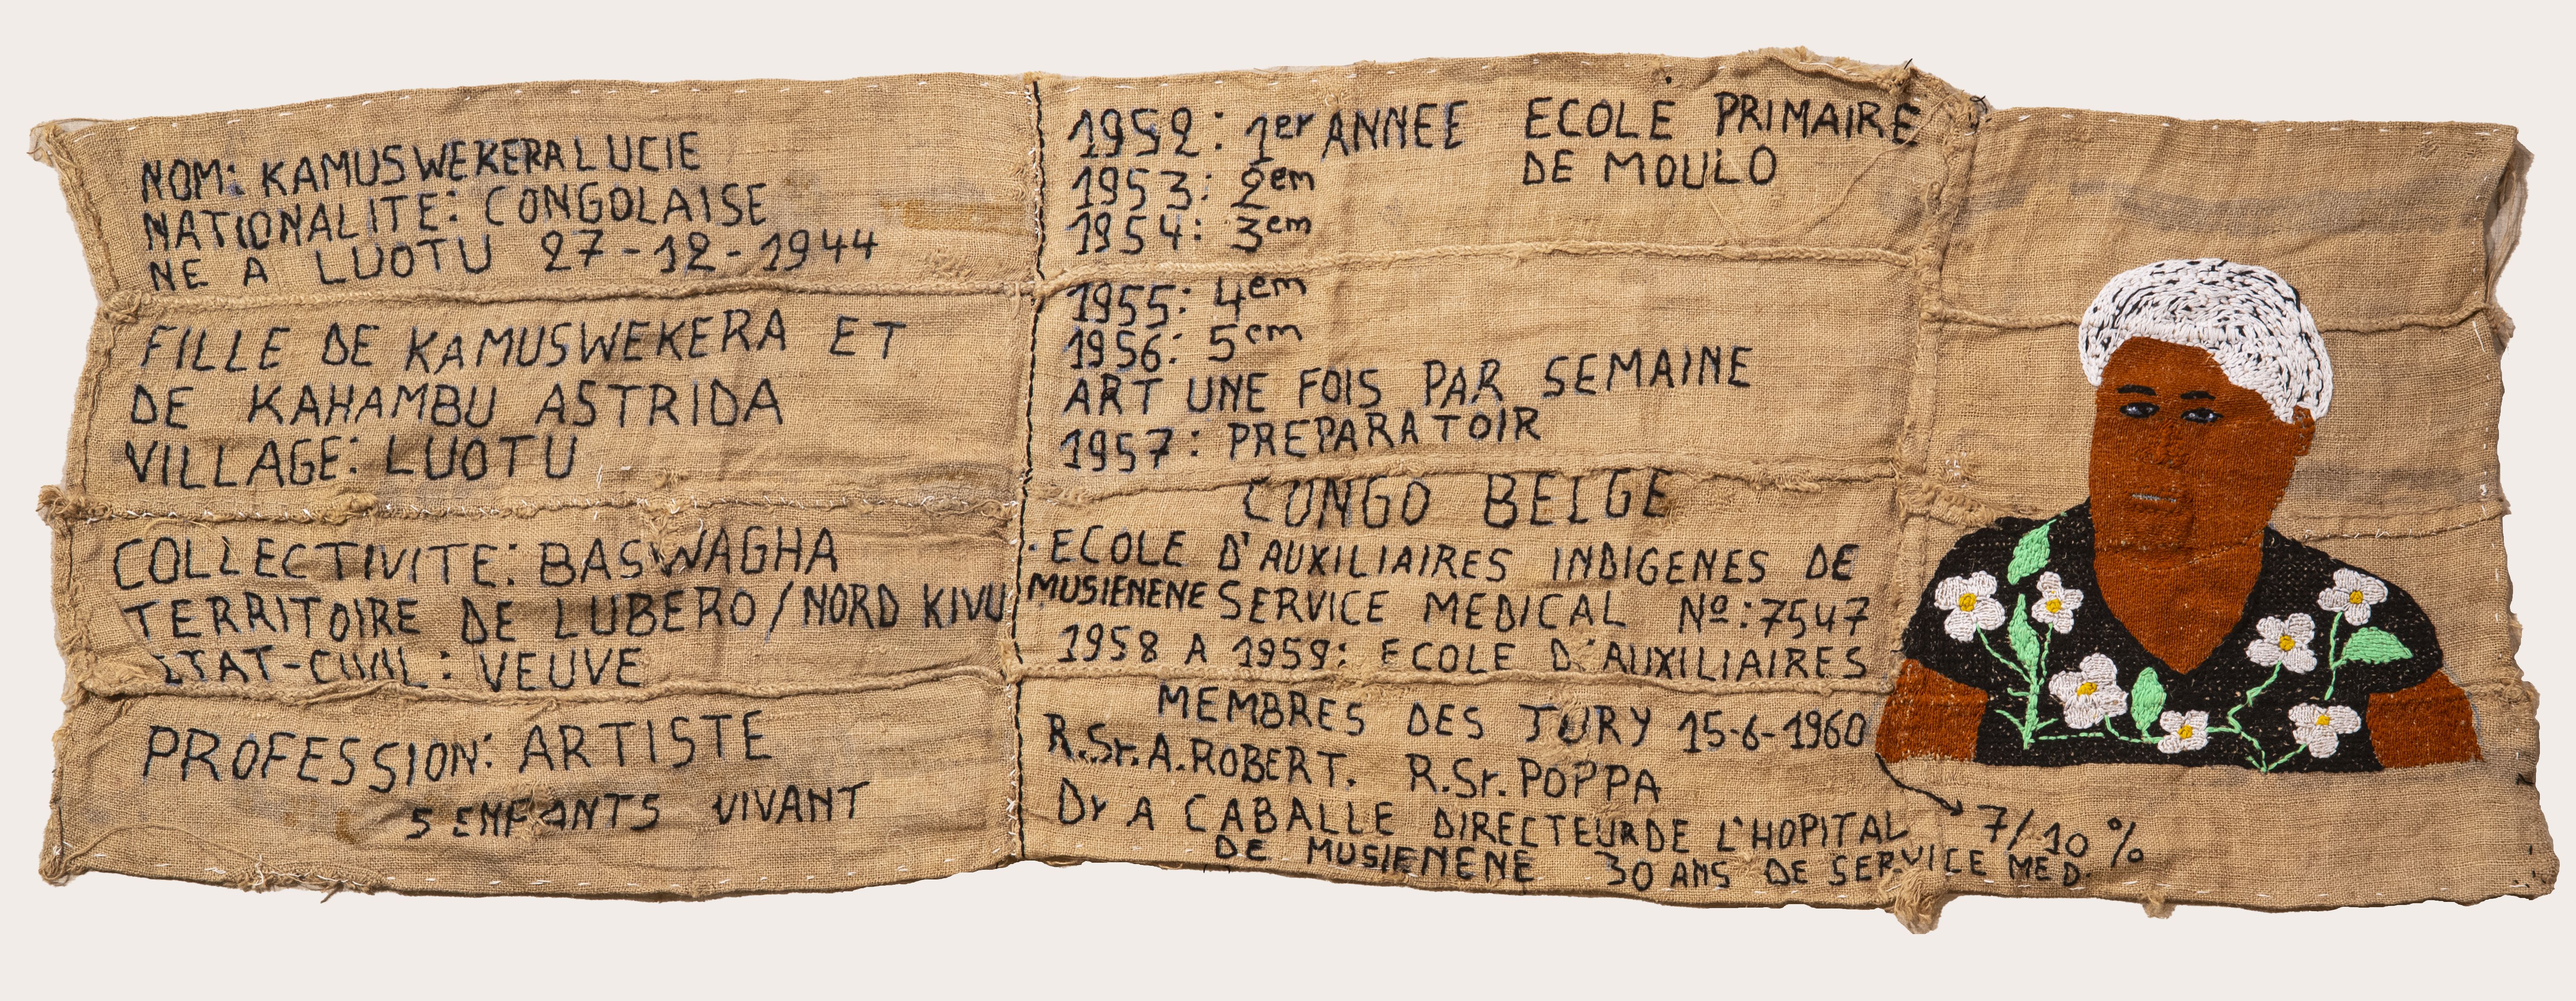 NOM: KAMUSWEKERA LUCIE
NATIONALITE: CONGOLAISE
NE A LUOTU 27-12-1944
FILLE DE KAMUSWEKERA ET
DE KAHAMBU ASTRIDA
VILLAGE: LUOTU
COLLECTIVITE: BASWAGHA
TERRITOIRE DE LUBERO/NORD KIVU
ETAT-CIVIL: VEUVE
PROFESSION: ARTISTE
5 ENFANTS VIVANT
1952: 1er ANNEE ECOLE PRIMAIRE
DE MOULO
1953: 2em
1954: 3em
1955: 4em
1956: 5em
ART UNE FOIS PAR SEMAINE
1957: PREPARATOIR
CONGO BELGE
ECOLE D'AUXILIAIRES INDIGENES DE
MUSIENENE SERVICE MEDICAL Nº: 7547
1958 A 1959: ECOLE D'AUXILIAIRES
MEMBRES DES JURY 15-6-1960
R.Sr. A. ROBERT. R.Sr. POPPA
Dr A CABALLE DIRECTEUR DE L'HOPITAL
DE MUSIENENE 30 ANS DE SERVICE MED.
7/10 %